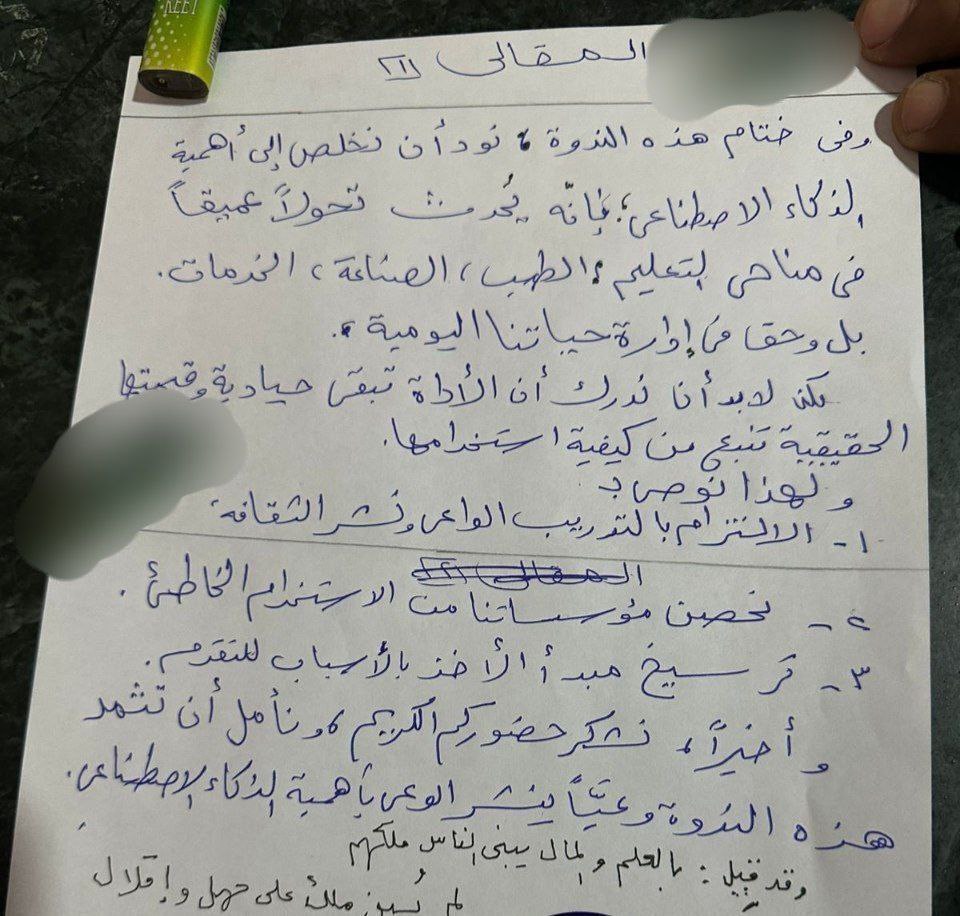 KEET
المقالى (٢١)
وفى ختام هذه الندوة، نود أن نخلص إلى أهمية
الذكاء الاصطناعى؛ فإنّه يُحدث تحولاً عميقاً
فى مناحى التعليم، الطب، الصناعة، الخدمات.
بل وحقا فى إدارة حياتنا اليومية.
لكن لابد أن ندرك أن الأداة تبقى حيادية وقيمتها
الحقيقية تنبع من كيفية استخدامها.
ولهذا نوصى بـ
١- الالتزام بالتدريب الواعى ونشر الثقافة.
٢- تحصين مؤسساتنا من الاستخدام الخاطئ.
٣- ترسيخ مبدأ الأخذ بالأسباب للتقدم.
وأخيراً، نشكر حضوركم الكريم، ونأمل أن تثمر
هذه الندوة وعيًّا ينشر الوعى بأهمية الذكاء الاصطناعى.
وقد قيل: بالعلم والمال يبنى الناس ملكهم
لم يُبن ملك على جهل وإقلال